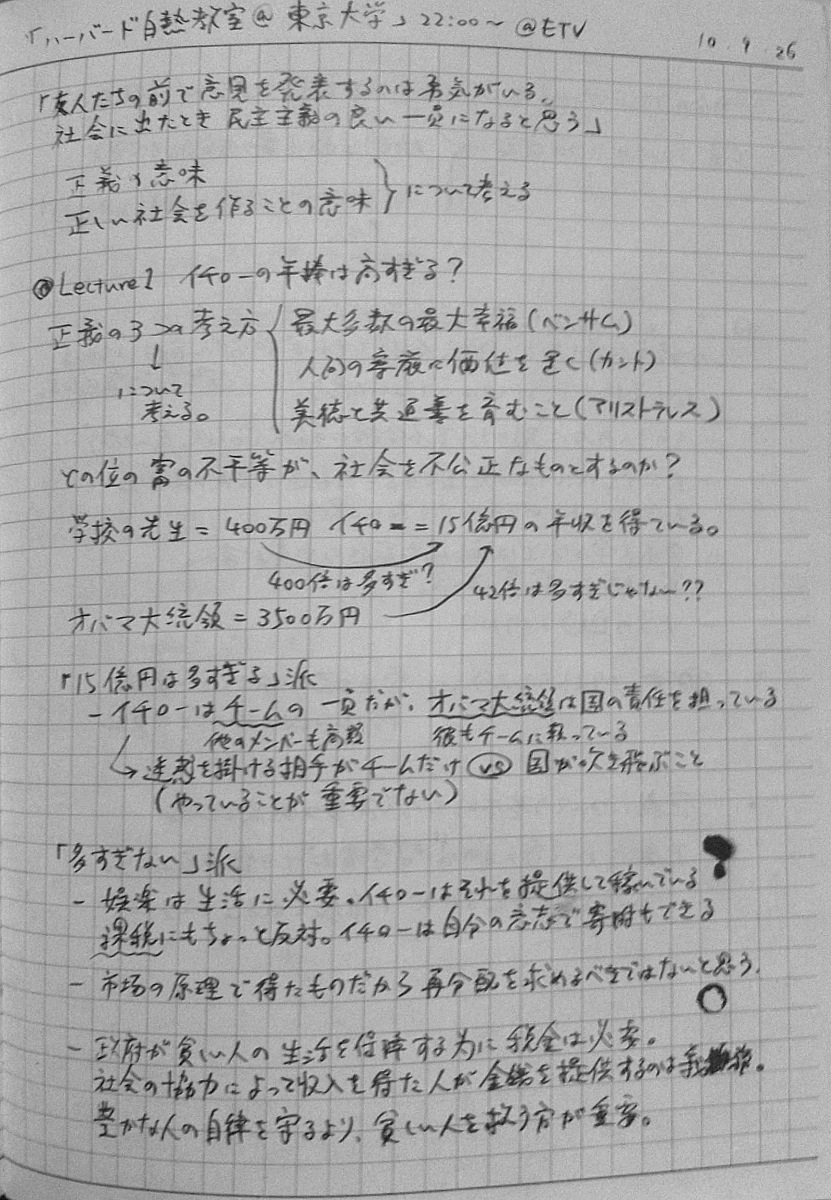 「ハーバード白熱教室@東京大学」22:00〜 @ETV
10.9.26
「友人たちの前で意見を発表するのは勇気がいる。
社会に出たとき民主主義の良い一員になると思う」
正義の意味
正しい社会を作ることの意味
について考える
◎Lecture1 イチローの年棒は高すぎる?
正義の3つの考え方
最大多数の最大幸福(ベンサム)
人間の尊厳に価値を置く(カント)
↓
について
考える。
美徳と共通善を育むこと(アリストテレス)
どの位の富の不平等が、社会を不公正なものとするのか?
学校の先生=400万円 イチロー=15億円の年収を得ている。
400倍は多すぎ?
42倍は多すぎじゃない??
オバマ大統領=3500万円
「15億円は多すぎる」派
-イチローはチームの一員だが、オバマ大統領は国の責任を担っている
他のメンバーも高額 彼もチームに頼っている
→迷惑を掛ける相手がチームだけ vs 国が吹き飛ぶこと
(やっていることが重要でない)
「多すぎない」派
- 娯楽は生活に必要。イチローはそれを提供して稼いでいる
課税にもちょっと反対。イチローは自分の意志で寄附もできる
- 市場の原理で得たものだから再分配を求めるべきではないと思う。
- 政府が貧しい人の生活を保障する為に税金は必要。
社会の協力によって収入を得た人が金銭を提供するのは
豊かな人の自律を守るより、貧しい人を救う方が重要。